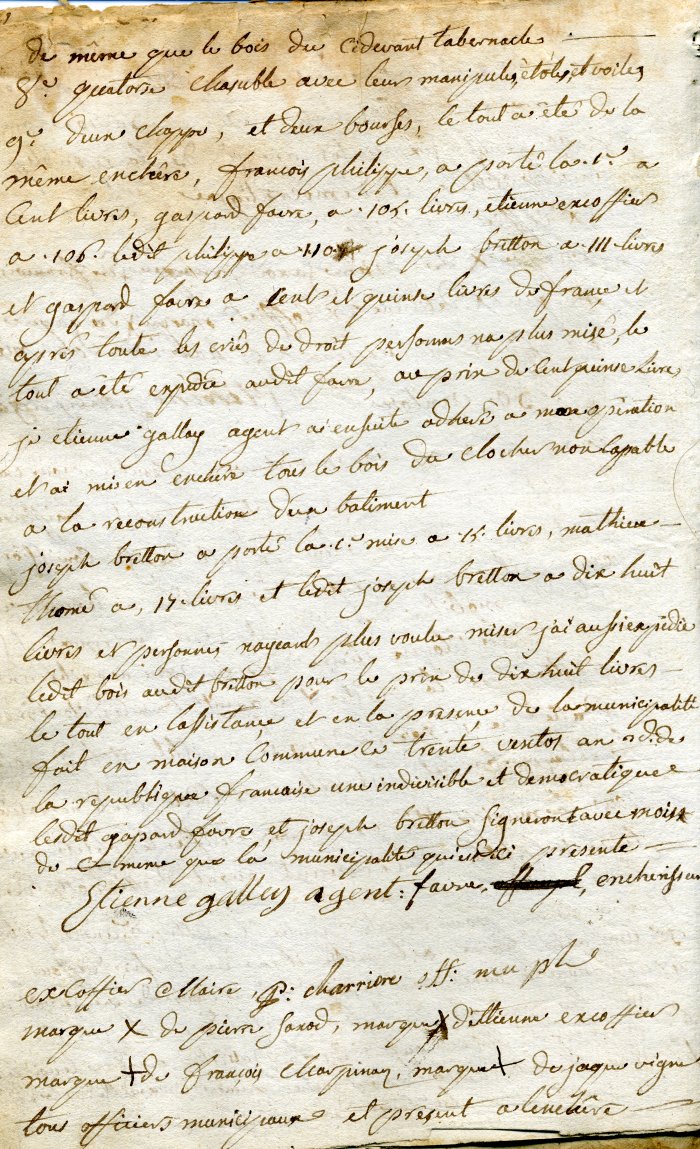 de même que le bois du cidevant tabernacle
8.° quatorse chasuble avec leurs manipules, étoles et voiles
9.° d'un chappe, et deux bourses, le tout a été de la
même enchère, françois philippe, a porté la 1.e a
Cent livres, gaspard favre, a 105. livres, etienne excoffier
a 106. ledit philippe a 110 joseph bretton a 111 livres
et gaspard favre a Cent et quinse livres de france, et
après toute les criés de droit personnes na plus misé, le
tout a été expédiée audit favre, au prix de Cent quinse livres
je etienne gallay agent ai ensuite adheré a mon opération
et ai mis en enchère tous le bois du clocher non Capable
a la reconstruction d'un batiment
joseph bretton a porté la 1.e mise a 15. livres, mathieu
thomé a, 17. livres et ledit joseph bretton a dix huit
livres et personnes nayeant plus voulu miser j'ai aussi expédié
ledit bois audit bretton pour le prix de dix huit livres
le tout en lassistance et en la présence de la municipalité
fait en maison Commune ce trente ventos an 2.d de
la republique francaise une indivisible et democratique
lesdit gaspard favre et joseph bretton signeront avec moi
de même que la municipalité qui est ici présente
Etienne gallay agent : favre, encherisseur
excoffier Maire, p: charriere off: mu pl
marque X de pierre Sarod, marque X d'Ettienne excoffier
marque + de françois Charpinay, marque + de jaque vigne
tous officiers municipaux et présent a lenchère